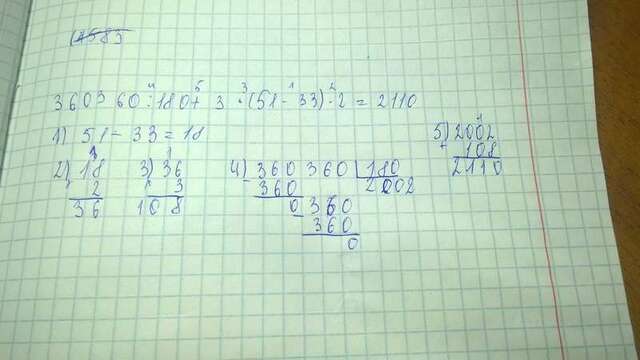 360360:180+3·(51-33)·2=2110
4 5 3 1 2
1) 51-33=18
2) 18
× 2
36
3) 36
× 3
108
4) 360360 | 180
- 360 2002
0360
- 360
0
5) 2002
+ 108
2110